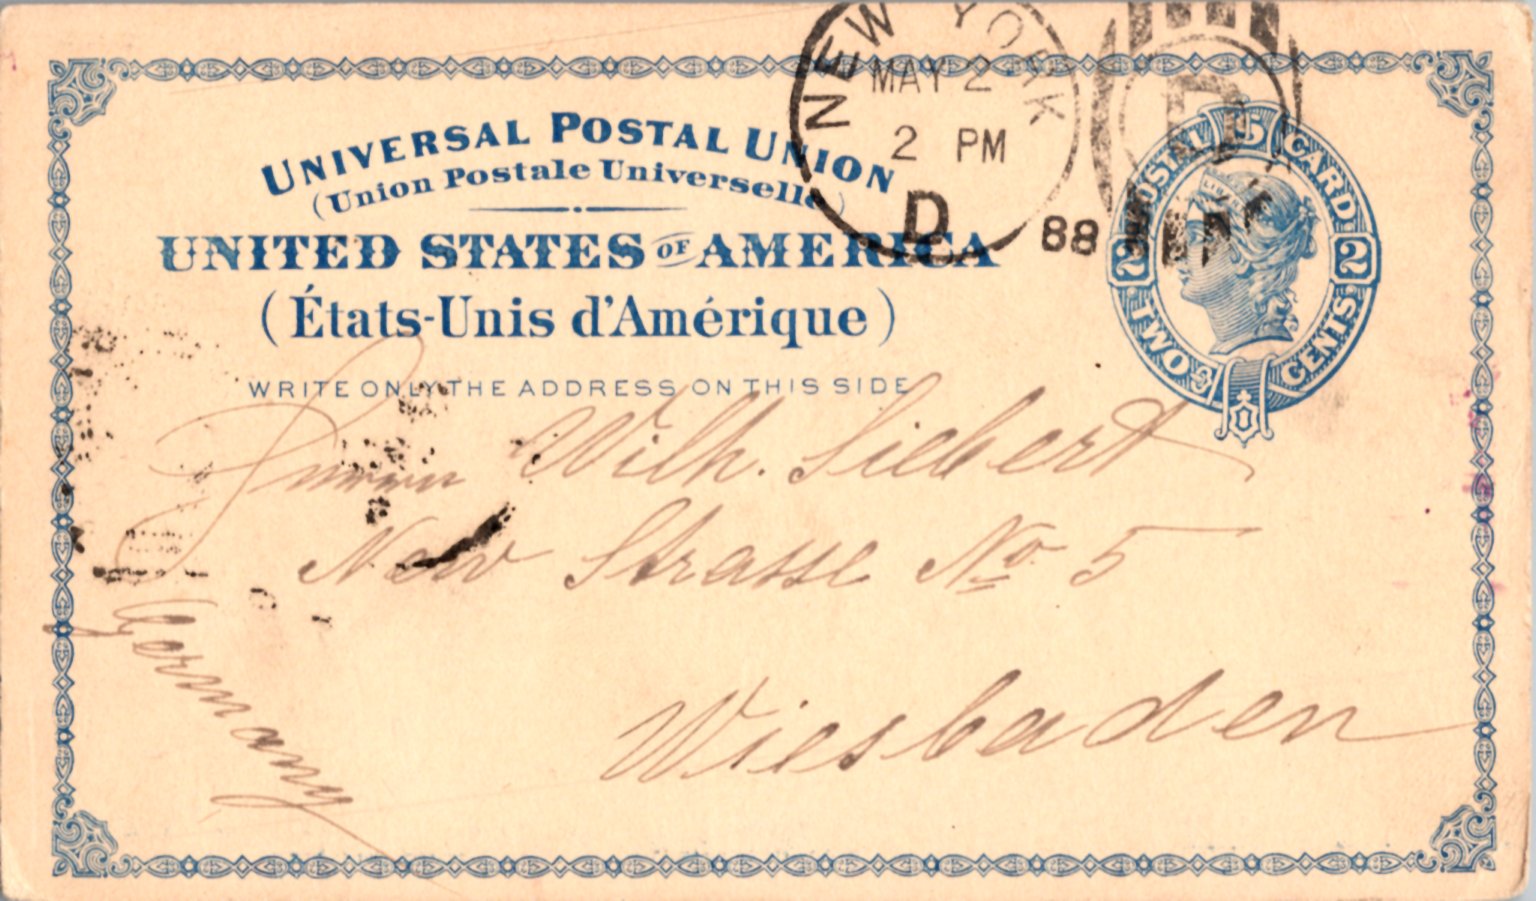 NEW YORK
MAY 2
2 PM
D
88
UNIVERSAL POSTAL UNION
(Union Postale Universelle)
UNITED STATES OF AMERICA
(États-Unis d'Amérique)
WRITE ONLY THE ADDRESS ON THIS SIDE
POSTAL CARD
2 2
TWO CENTS
Wilh. Siebert
New Strasse No 5
Wiesbaden
Germany